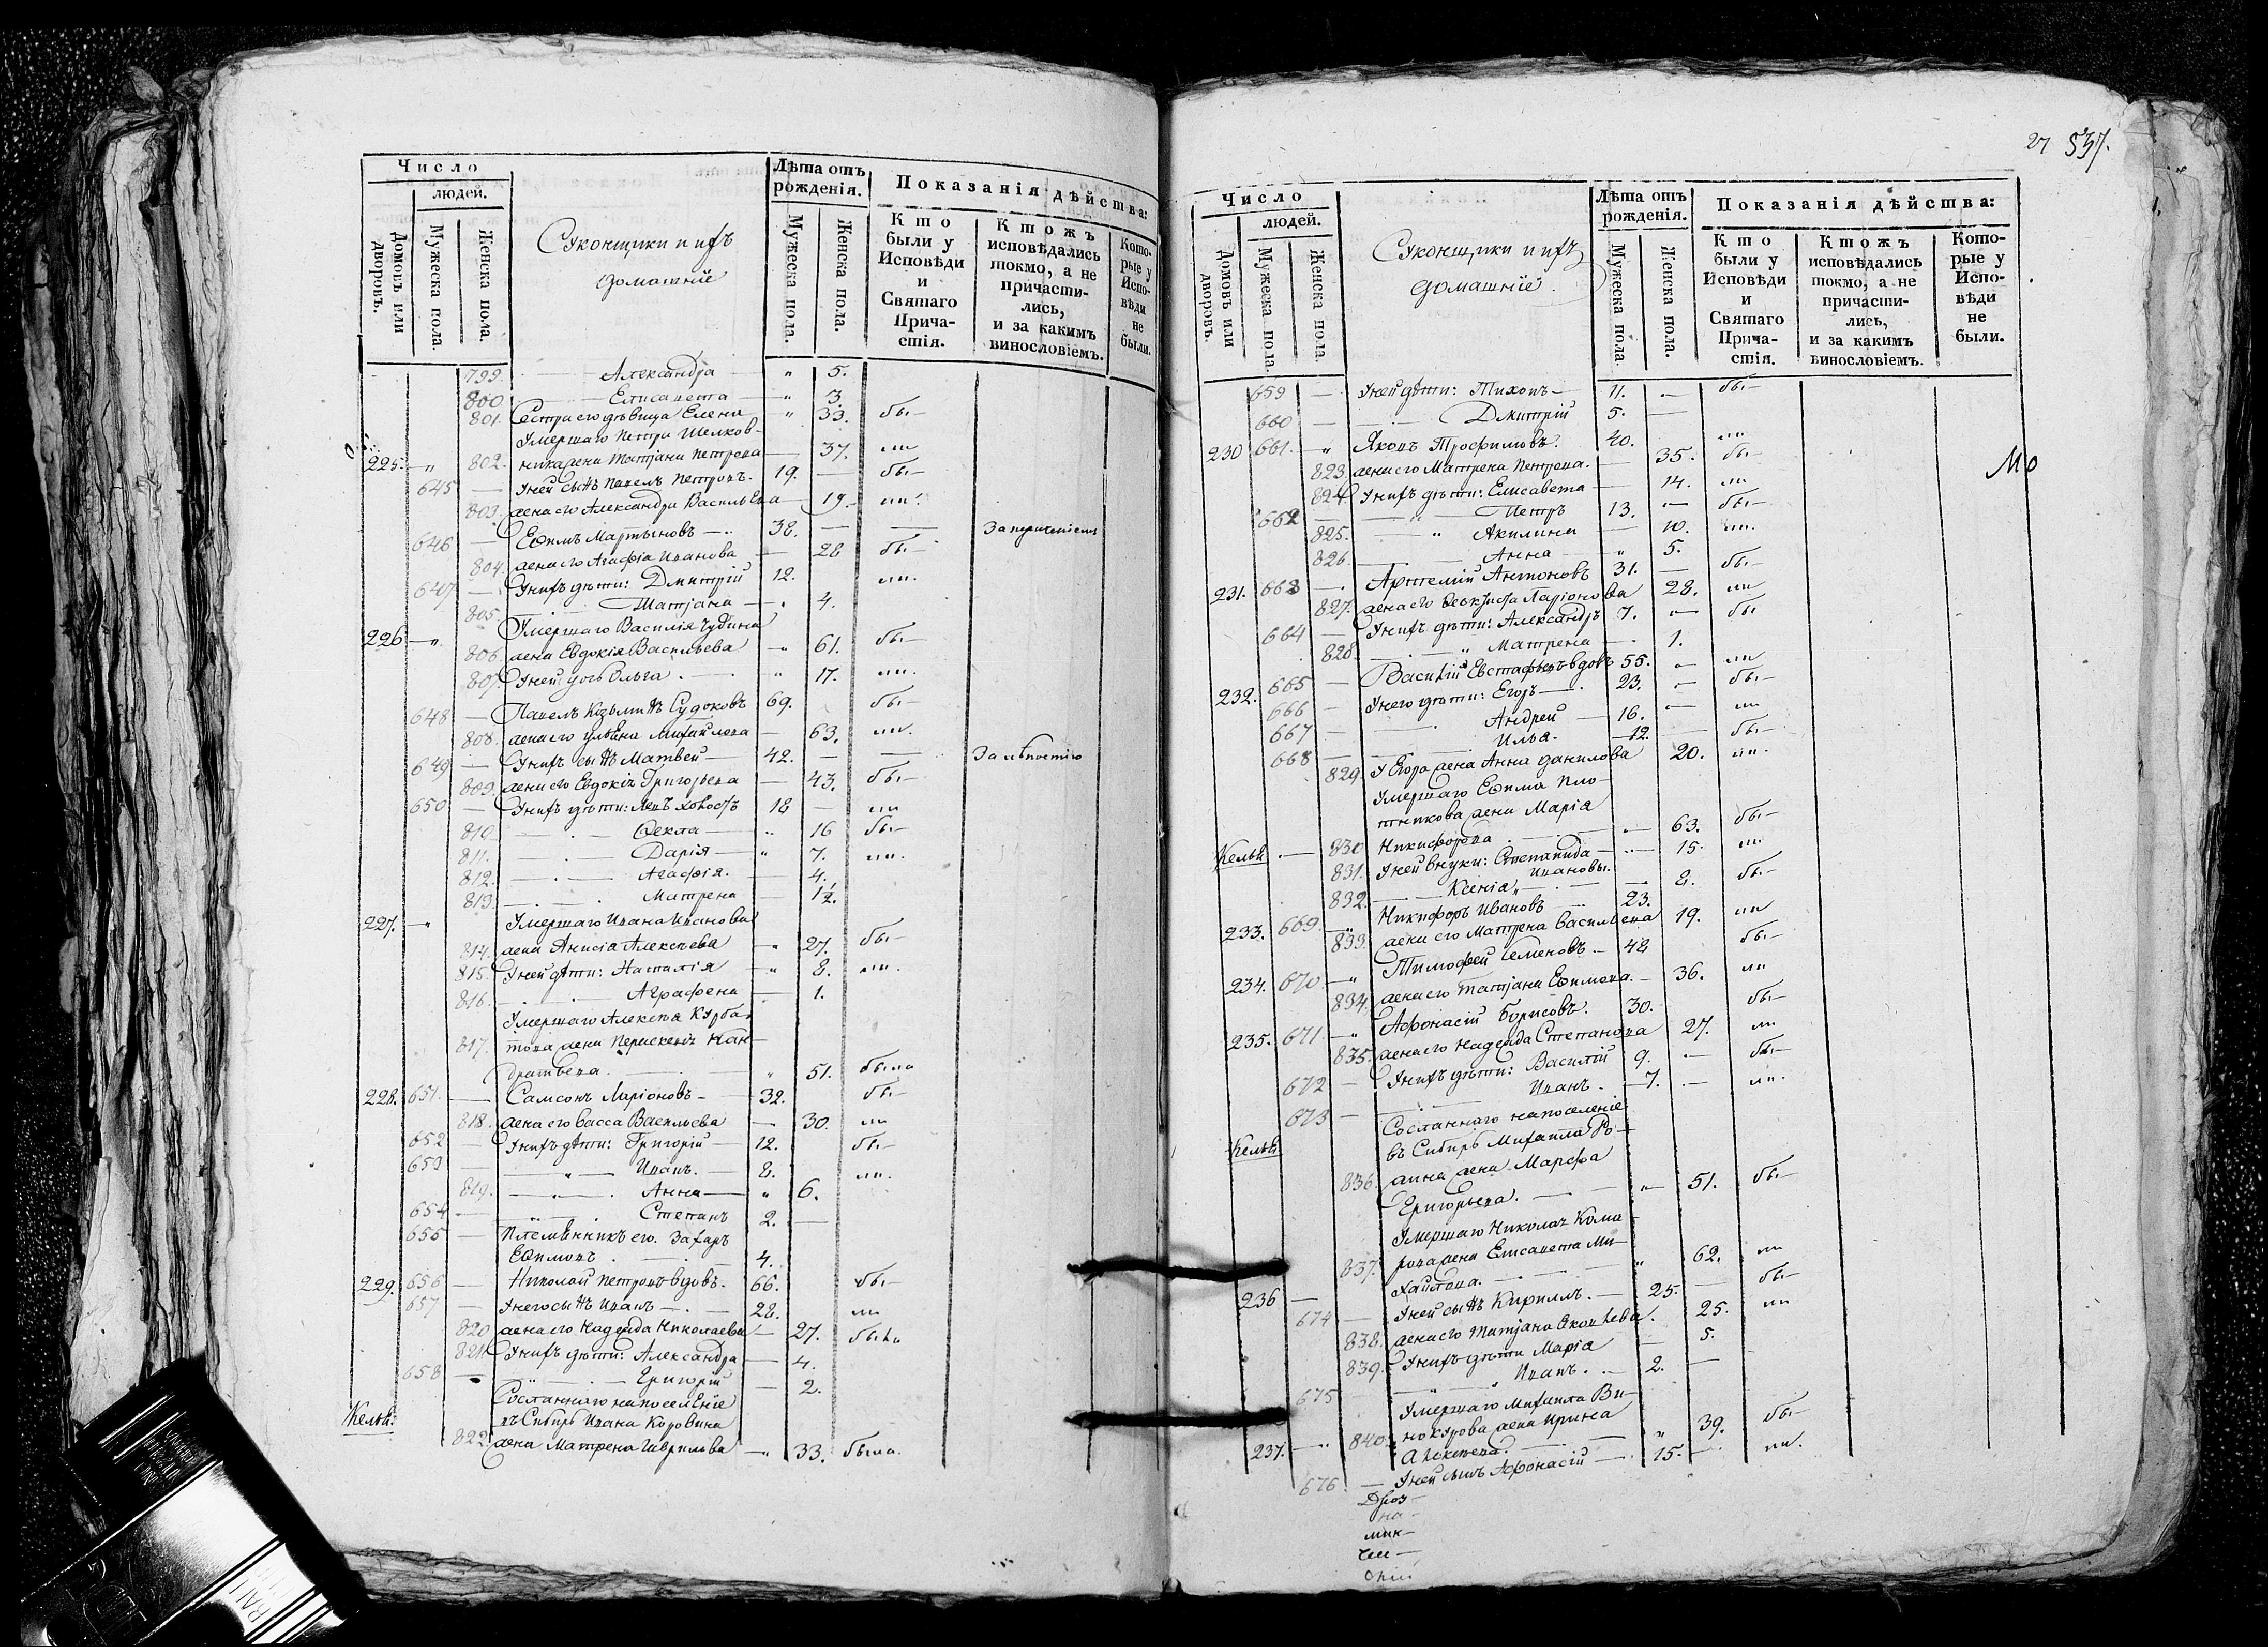 Число
людей.
Домовъ или дворовъ.
Мужеска пола.
Женска пола.
Суконщики и ихъ
домашніе
Лѣта отъ
рожденія.
Мужеска пола.
Женска пола.
Показанія дѣйства:
Кто
были у
Исповѣди
и
Святаго
Прича-
стія.
Ктожъ
исповѣдались
токмо, а не
причасти-
лись,
и за какимъ
винословіемъ.
Кото-
рые у
Испо-
вѣди
не
были.
799. Александра " 5.
800 Елисавета " 3.
801. Сестра его дѣвица Елена " 33. бы—
Умершаго Петра Шелков-
225. " 802. никажена Татіана Петрова — 37. ли
645 — Уней сынъ Павелъ Петровъ. 19. — бы—
803. жена его Александра Васильева — 19. ли.
646 — Ефимъ Мартыновъ 38. — —
804. жена его Агафіа Иванова — 28 бы—
647 — Унихъ дѣти: Дмитрій 12. ли.
805. Татіана — 4.
Умершаго Василія Чудина
226 — " 806. жена Евдокія Васильева " 61. бы—
807. Уней дочь Ольга. " 17. ли.
648 — Павелъ Козьминъ Судоковъ 69. бы—
808. жена его Ульяна Михайлова — 63. ли.
649 — Унихъ сынъ Матвей 42. — — За лѣностію
809. жена его Евдокія Григорьева — 43. бы—
650 — Унихъ дѣти: 18 — ли
810 Ѳекла " 16 бы—
811. Дарія " 7. ли.
812. Агафіа. — 4.
813 Матрена — 1½.
227. " Умершаго Ивана Иванова
814. жена Анисіа Алексѣева " 27. бы—
815. Уней дѣти: Наталія " 8. ли.
816. Аграфена — 1.
Умершаго Алексѣя Курба-
817. това жена Параскевіа Кон-
дратьева. " 51. была
228. 651. — Самсонъ Ларіоновъ — 32. бы—
818. жена его Васса Васильева — 30. ли
652 — Унихъ дѣти: Григорій 12. бы—
653 — " Иванъ. 8. ли.
819. Анна " 6.
654 — Степанъ 2. —
655 — Племянникъ его Захаръ
Ефимовъ. 4.
229. 656 — Николай Петровъ вдовъ. 66. бы—
657 — Унего сынъ Иванъ 28. ли
820 жена его Надежда Николаева 27. была
821. Унихъ дѣти: Александра — 4.
658 — Григорій — 2.
Сосланнаго на поселеніе
Кельи: въ Сибирь Ивана Коровина
822. жена Матрена Гаврилова " 33. была.
27 537.
Число
людей.
Домовъ или дворовъ.
Мужеска пола.
Женска пола.
Суконщики и ихъ
домашніе.
Лѣта отъ
рожденія.
Мужеска пола.
Женска пола.
Показанія дѣйства:
Кто
были у
Исповѣди
и
Святаго
Прича-
стія.
Ктожъ
исповѣдались
токмо, а не
причасти-
лись,
и за какимъ
винословіемъ.
Кото-
рые у
Испо-
вѣди
не
были.
659 — Уней дѣти: Тихонъ — 11. — бы—
660 — Дмитрій 5. —
230 661. " Яковъ Трофимовъ. 40. ли
823 жена его Матрена Петрова. — 35. бы—
824 Унихъ дѣти: Елисавета — 14. ли
662 — Петръ 13. — бы—
825. " Акилина — 10. ли.
826 Анна " 5.
231. 663 — Артемій Антоновъ 31. — бы—
827. жена его Ѳеоктиста Ларіонова 28. ли
664 — Унихъ дѣти: Александръ 7. — бы
828. " Матрена — 1.
232. 665 — Василій Евстафьевъ вдовъ 55. — ли
666 — Унего дѣти: Егоръ 23. — бы—
667 — Андрей 16. — ли
668 — Илья. 12. — бы—
829. У Егора жена Анна Данилова 20. ли.
Умершаго Ефима Пло-
тникова жена Маріа
Кельи — 830 Никифорова " 63. бы—
831. Уней внуки: Степанида 15. ли
Ивановы.
832. Ксеніа — 8. бы—
233. 669. " Никифоръ Ивановъ 23.
833. жена его Матрена Васильева 19. ли
234. 670 " Тимофей Семеновъ — 48 бы—
834. жена его Татіана Ефимова. — 36. ли
235. 671 " Афонасій Борисовъ. 30. бы—
835. жена его Надежда Степанова 27. ли
672 — Унихъ дѣти: Василій 9. — бы—
673 — Иванъ. 7. — ли.
Сосланнаго на поселеніе
Кельи въ Сибирь Михаила Ро-
836. жена Марфа
Григорьева. " 51. бы—
Умершаго Николая Кома-
837. рова жена Елисавета Ми-
хайлова. " 62. ли
236 — 674 — Уней сынъ Кирилъ. 25. — бы—
838. жена его Татіана Яковлева. 25. ли
839. Унихъ дѣти Маріа — 5.
675 Иванъ. 2. —
Умершаго Михаила Ви-
237. " 840. нокурова жена Ирина
Алексѣева. " 39. бы—
676. — Уней сынъ Афонасій 15. — ли.